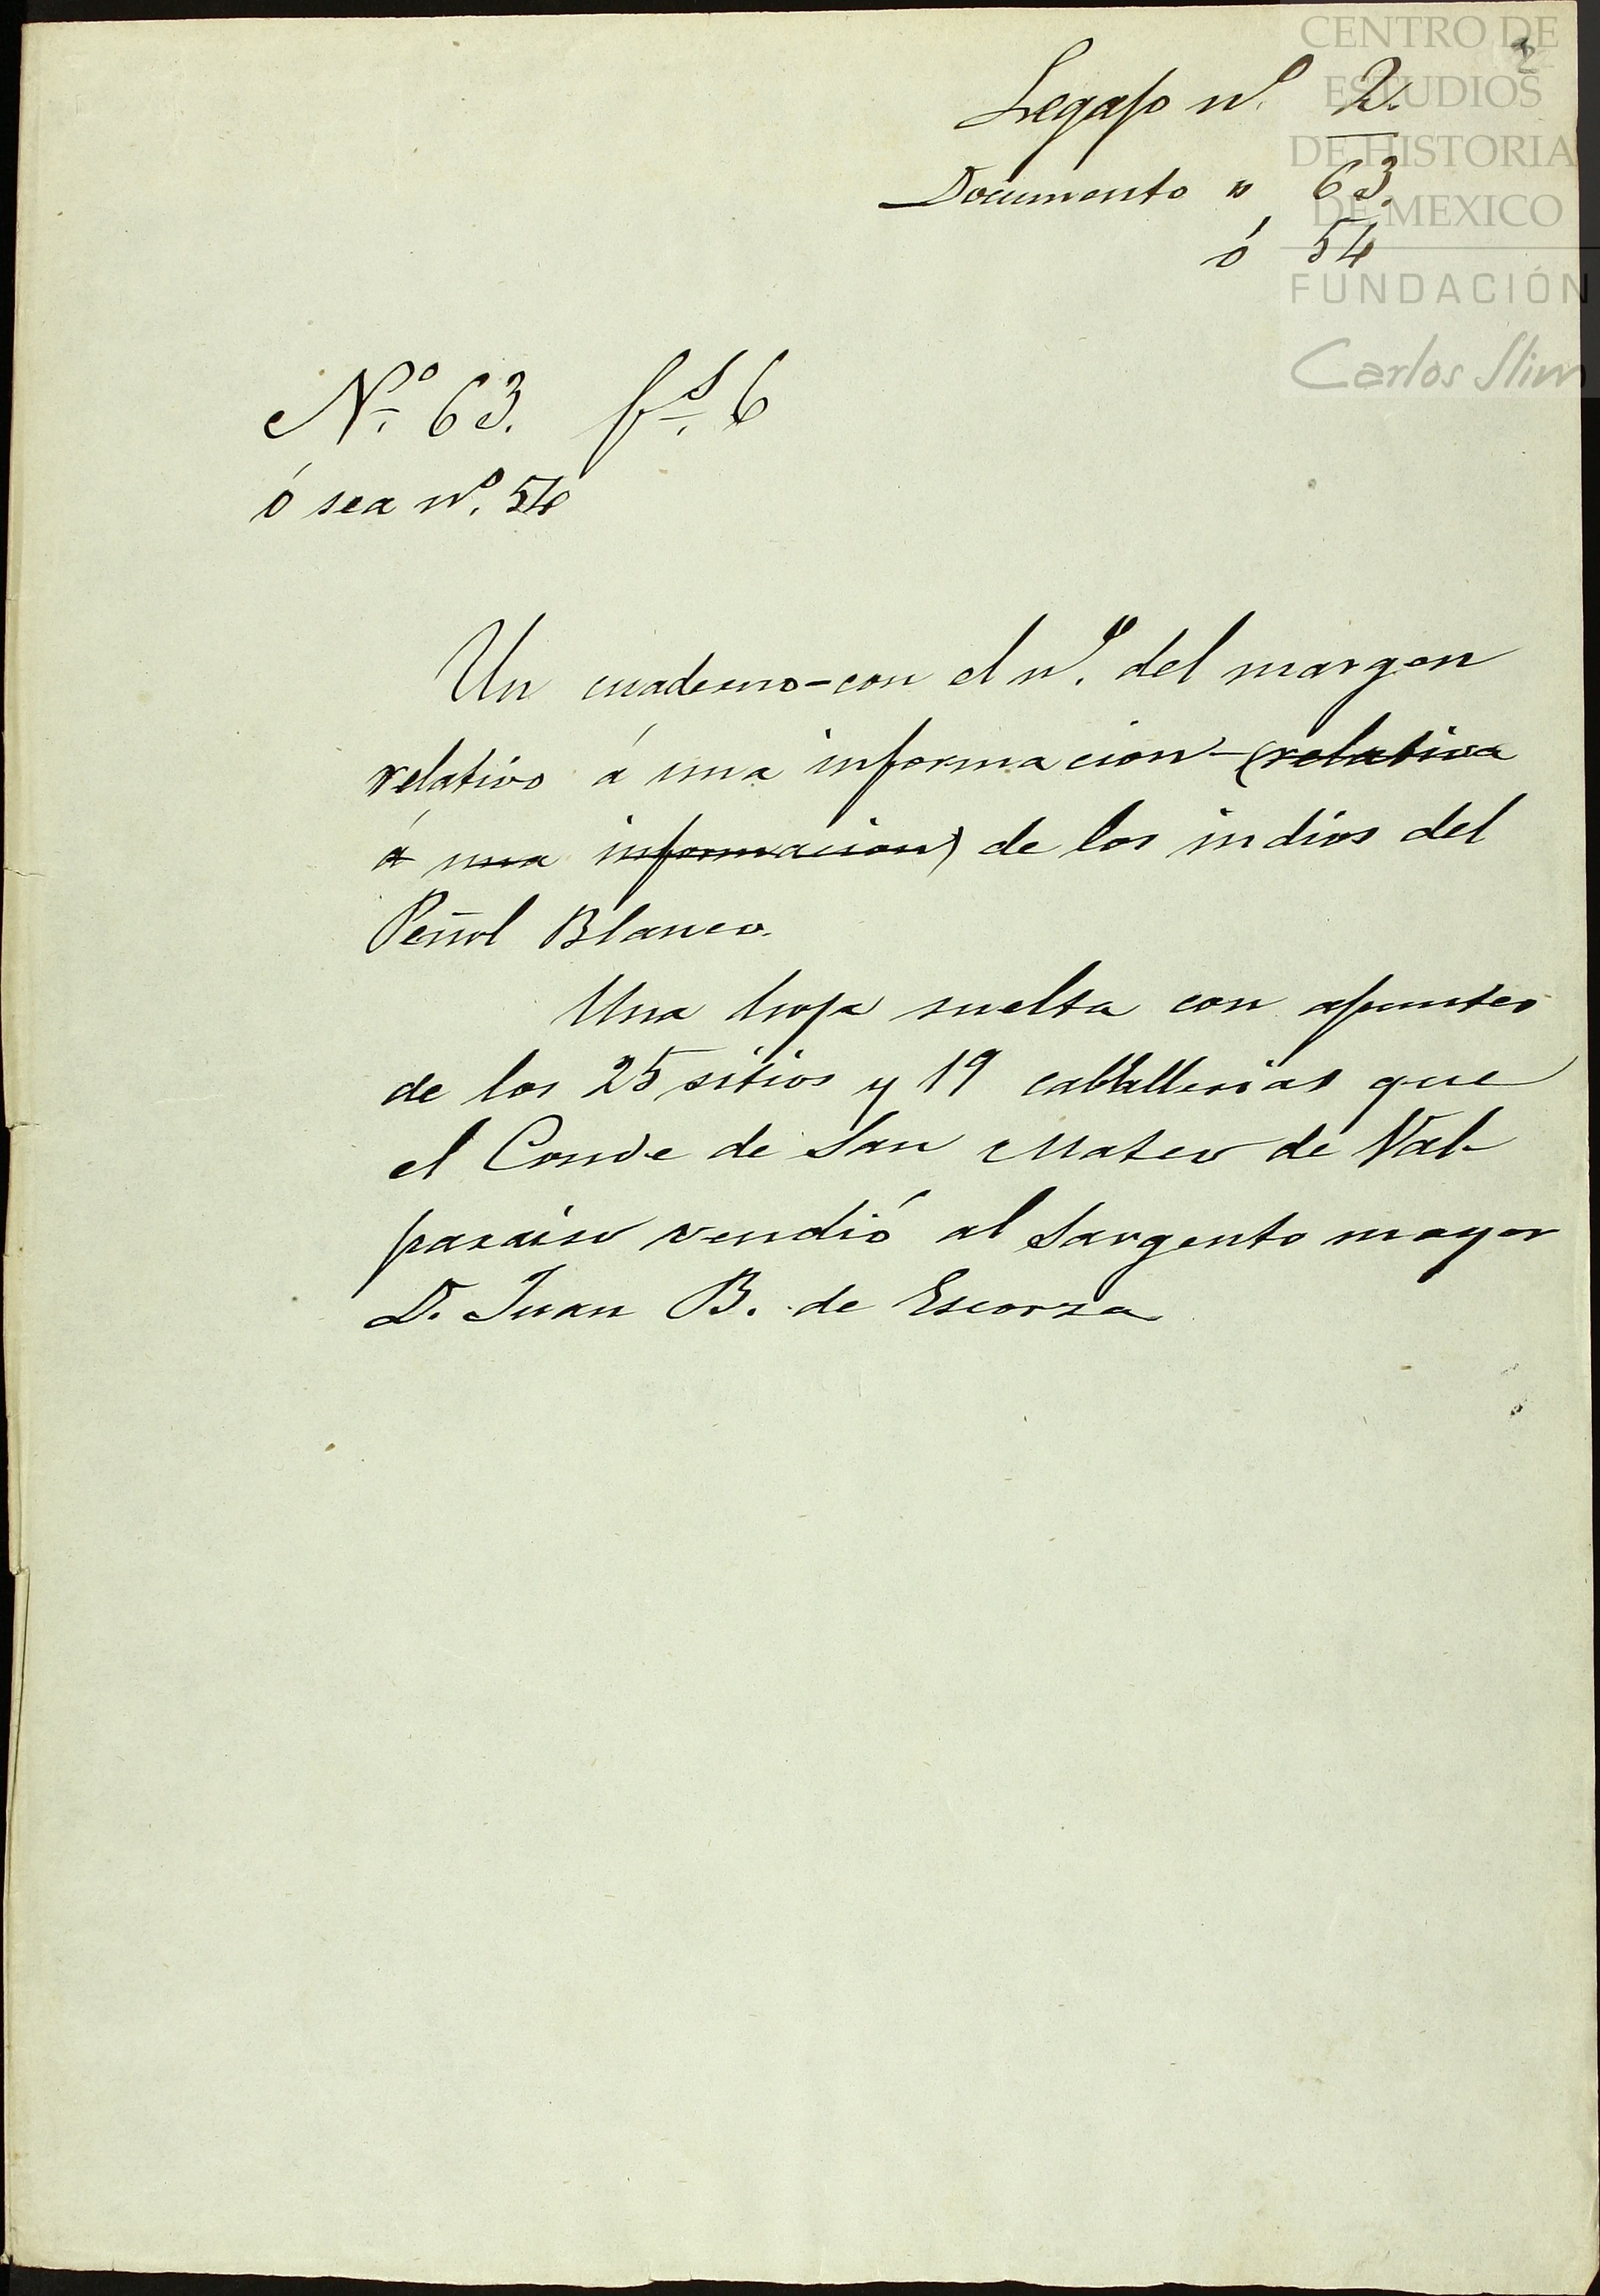 2
Legajo nº. 2.
Documento " 63.
ó 54
Nº. 63. fs. 6
ó sea nº. 54
Un cuaderno-con el nº. del margen
relativo á una informacion-(relativa
á una informacion) de los indios del
Peñol Blanco.
Una hoja suelta con apuntes
de los 25 sitios y 19 caballerias que
el Conde de San Mateo de Val-
paraiso vendió al Sargento mayor
D. Juan B. de Escorza
CENTRO DE
ESTUDIOS
DE HISTORIA
DE MEXICO
FUNDACIÓN
Carlos Slim